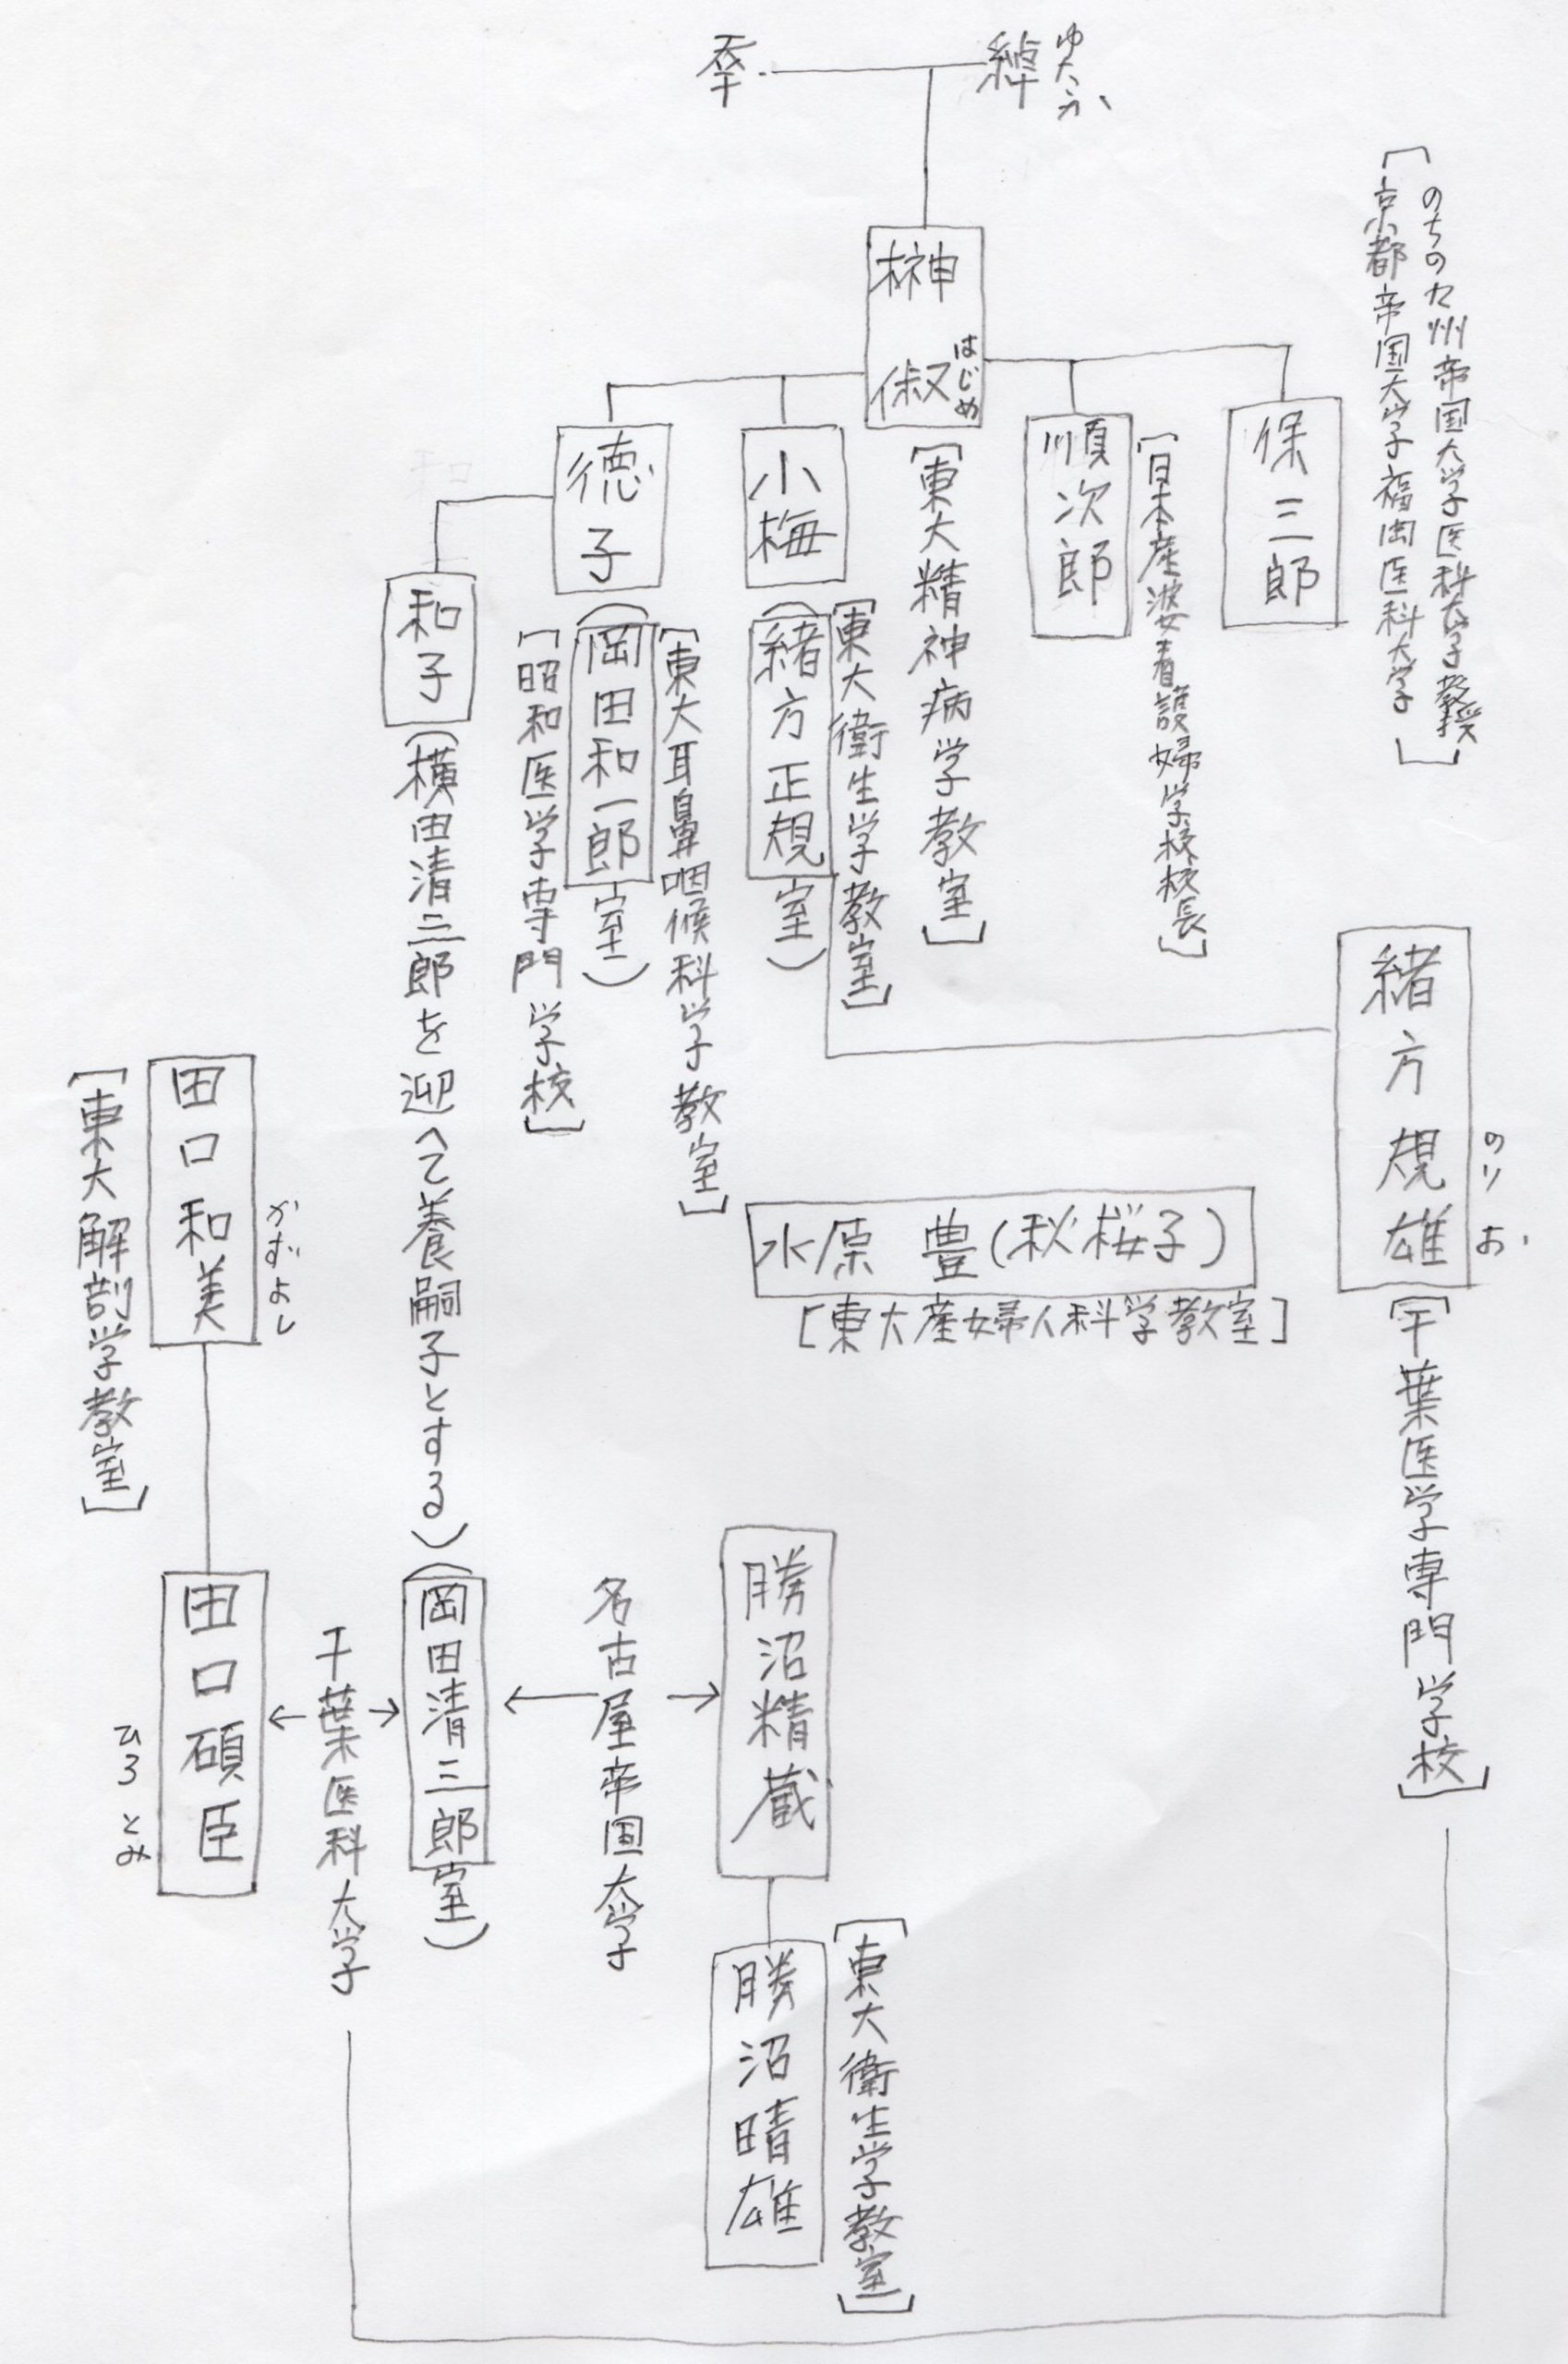 綽
ゆたか
榊
俶
はじめ
[東大精神病学教室]
保三郎
[京都帝国大学福岡医科大学
のちの九州帝国大学医科大学教授]
順次郎
[日本産婆看護婦学校校長]
小梅
(緒方正規室)
[東大衛生学教室]
徳子
(岡田和一郎室)
[東大耳鼻咽候科学教室]
[昭和医学専門学校]
和子
(横田清三郎を迎へて養嗣子とする)
(岡田清三郎室)
緒方規雄
のりお
[千葉医学専門学校]
水原 豊(秋桜子)
[東大産婦人科学教室]
田口和美
かずよし
[東大解剖学教室]
田口碩臣
ひろとみ
千葉医科大学
名古屋帝国大学
勝沼精蔵
勝沼晴雄
[東大衛生学教室]